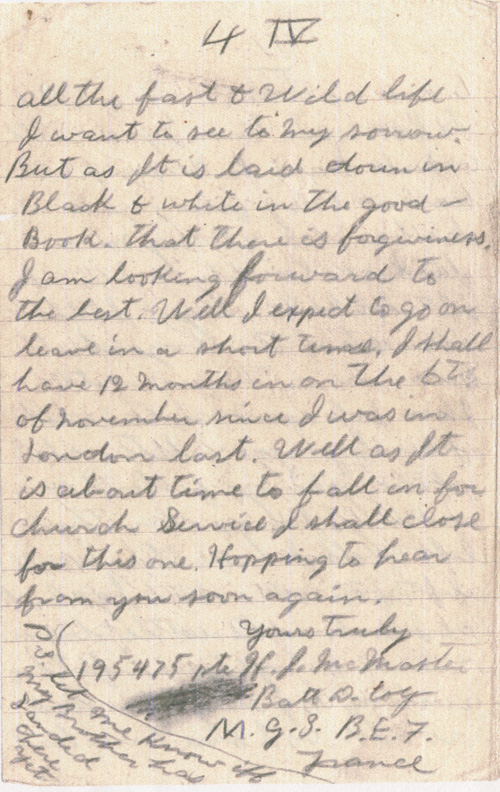 4 IV
all the fast & Wild life
I want to see to my sorrow.
But as It is laid down in
Black & white in the good
Book. that there is forgiviness.
I am looking forward to
the best. Well I expect to go on
leave in a short time. I shall
have 12 months in on the 6th
of november since I was in
London last. Well as It
is about time to fall in for
church Service I shall close
for this one. Hopping to hear
from you soon again.
Yours truly
195475 pte H. J. McMaster
Batt D. Coy
M. G. S. B. E. F.
France
P.S. let me know if
my Brother has
Landed
there
yet.